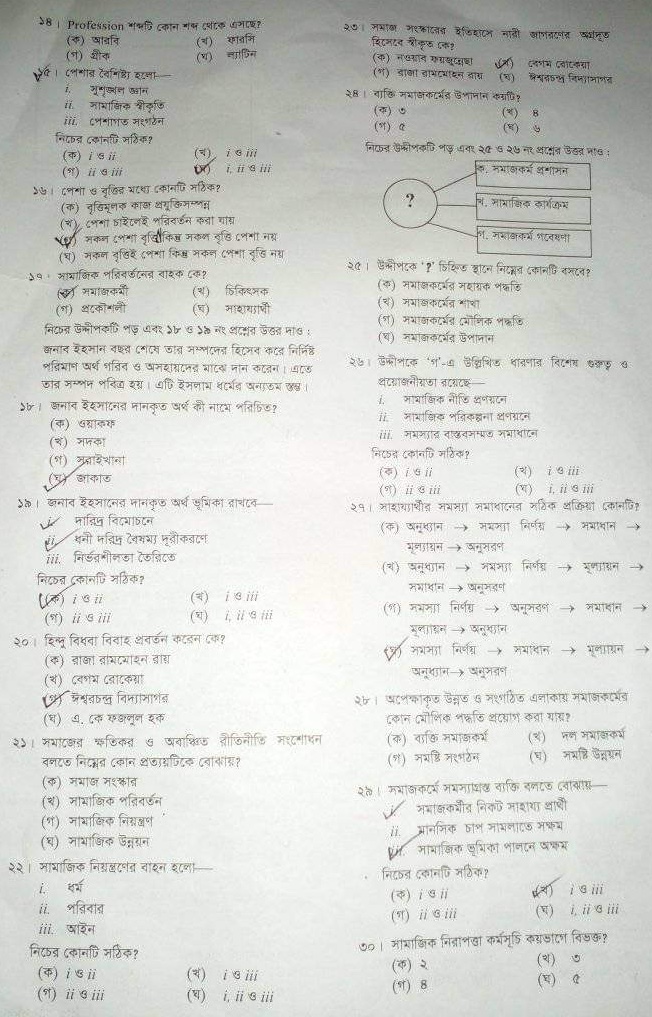 ১৪। Profession শব্দটি কোন শব্দ থেকে এসেছে?
(ক) আরবি (খ) ফারসি
(গ) গ্রীক (ঘ) ল্যাটিন
১৫। পেশার বৈশিষ্ট্য হলো—
i. সুশৃঙ্খল জ্ঞান
ii. সামাজিক স্বীকৃতি
iii. পেশাগত সংগঠন
নিচের কোনটি সঠিক?
(ক) i ও ii (খ) i ও iii
(গ) ii ও iii (ঘ) i, ii ও iii
১৬। পেশা ও বৃত্তির মধ্যে কোনটি সঠিক?
(ক) বৃত্তিমূলক কাজ প্রযুক্তিসম্পন্ন
(খ) পেশা চাইলেই পরিবর্তন করা যায়
(গ) সকল পেশা বৃত্তি কিন্তু সকল বৃত্তি পেশা নয়
(ঘ) সকল বৃত্তিই পেশা কিন্তু সকল পেশা বৃত্তি নয়
১৭। সামাজিক পরিবর্তনের বাহক কে?
(ক) সমাজকর্মী (খ) চিকিৎসক
(গ) প্রকৌশলী (ঘ) সাহায্যার্থী
নিচের উদ্দীপকটি পড় এবং ১৮ ও ১৯ নং প্রশ্নের উত্তর দাও :
জনাব ইহসান বছর শেষে তার সম্পদের হিসেব করে নির্দিষ্ট
পরিমাণ অর্থ গরিব ও অসহায়দের মাঝে দান করেন। এতে
তার সম্পদ পবিত্র হয়। এটি ইসলাম ধর্মের অন্যতম স্তম্ভ।
১৮। জনাব ইহসানের দানকৃত অর্থ কী নামে পরিচিত?
(ক) ওয়াকফ
(খ) সদকা
(গ) সরাইখানা
(ঘ) জাকাত
১৯। জনাব ইহসানের দানকৃত অর্থ ভূমিকা রাখবে—
i. দারিদ্র বিমোচনে
ii. ধনী দরিদ্র বৈষম্য দূরীকরণে
iii. নির্ভরশীলতা তৈরিতে
নিচের কোনটি সঠিক?
(ক) i ও ii (খ) i ও iii
(গ) ii ও iii (ঘ) i, ii ও iii
২০। হিন্দু বিধবা বিবাহ প্রবর্তন করেন কে?
(ক) রাজা রামমোহন রায়
(খ) বেগম রোকেয়া
(গ) ঈশ্বরচন্দ্র বিদ্যাসাগর
(ঘ) এ. কে ফজলুল হক
২১। সমাজের ক্ষতিকর ও অবাঞ্ছিত রীতিনীতি সংশোধন
বলতে নিম্নের কোন প্রত্যয়টিকে বোঝায়?
(ক) সমাজ সংস্কার
(খ) সামাজিক পরিবর্তন
(গ) সামাজিক নিয়ন্ত্রণ
(ঘ) সামাজিক উন্নয়ন
২২। সামাজিক নিয়ন্ত্রণের বাহন হলো—
i. ধর্ম
ii. পরিবার
iii. আইন
নিচের কোনটি সঠিক?
(ক) i ও ii (খ) i ও iii
(গ) ii ও iii (ঘ) i, ii ও iii
২৩। সমাজ সংস্কারের ইতিহাসে নারী জাগরণের অগ্রদূত
হিসেবে স্বীকৃত কে?
(ক) নওয়াব ফয়জুন্নেছা (খ) বেগম রোকেয়া
(গ) রাজা রামমোহন রায় (ঘ) ঈশ্বরচন্দ্র বিদ্যাসাগর
২৪। ব্যক্তি সমাজকর্মের উপাদান কয়টি?
(ক) ৩ (খ) ৪
(গ) ৫ (ঘ) ৬
নিচের উদ্দীপকটি পড় এবং ২৫ ও ২৬ নং প্রশ্নের উত্তর দাও :
?
ক. সমাজকর্ম প্রশাসন
খ. সামাজিক কার্যক্রম
গ. সমাজকর্ম গবেষণা
২৫। উদ্দীপকে '?' চিহ্নিত স্থানে নিম্নের কোনটি বসবে?
(ক) সমাজকর্মের সহায়ক পদ্ধতি
(খ) সমাজকর্মের শাখা
(গ) সমাজকর্মের মৌলিক পদ্ধতি
(ঘ) সমাজকর্মের উপাদান
২৬। উদ্দীপকে 'গ'-এ উল্লিখিত ধারণার বিশেষ গুরুত্ব ও
প্রয়োজনীয়তা রয়েছে—
i. সামাজিক নীতি প্রণয়নে
ii. সামাজিক পরিকল্পনা প্রণয়নে
iii. সমস্যার বাস্তবসম্মত সমাধানে
নিচের কোনটি সঠিক?
(ক) i ও ii (খ) i ও iii
(গ) ii ও iii (ঘ) i, ii ও iii
২৭। সাহায্যার্থীর সমস্যা সমাধানের সঠিক প্রক্রিয়া কোনটি?
(ক) অনুধ্যান → সমস্যা নির্ণয় → সমাধান →
মূল্যায়ন → অনুসরণ
(খ) অনুধ্যান → সমস্যা নির্ণয় → মূল্যায়ন →
সমাধান → অনুসরণ
(গ) সমস্যা নির্ণয় → অনুসরণ → সমাধান →
মূল্যায়ন → অনুধ্যান
(ঘ) সমস্যা নির্ণয় → সমাধান → মূল্যায়ন →
অনুধ্যান → অনুসরণ
২৮। অপেক্ষাকৃত উন্নত ও সংগঠিত এলাকায় সমাজকর্মের
কোন মৌলিক পদ্ধতি প্রয়োগ করা যায়?
(ক) ব্যক্তি সমাজকর্ম (খ) দল সমাজকর্ম
(গ) সমষ্টি সংগঠন (ঘ) সমষ্টি উন্নয়ন
২৯। সমাজকর্মে সমস্যাগ্রস্ত ব্যক্তি বলতে বোঝায়—
i. সমাজকর্মীর নিকট সাহায্য প্রার্থী
ii. মানসিক চাপ সামলাতে সক্ষম
iii. সামাজিক ভূমিকা পালনে অক্ষম
নিচের কোনটি সঠিক?
(ক) i ও ii (খ) i ও iii
(গ) ii ও iii (ঘ) i, ii ও iii
৩০। সামাজিক নিরাপত্তা কর্মসূচি কয়ভাগে বিভক্ত?
(ক) ২ (খ) ৩
(গ) ৪ (ঘ) ৫